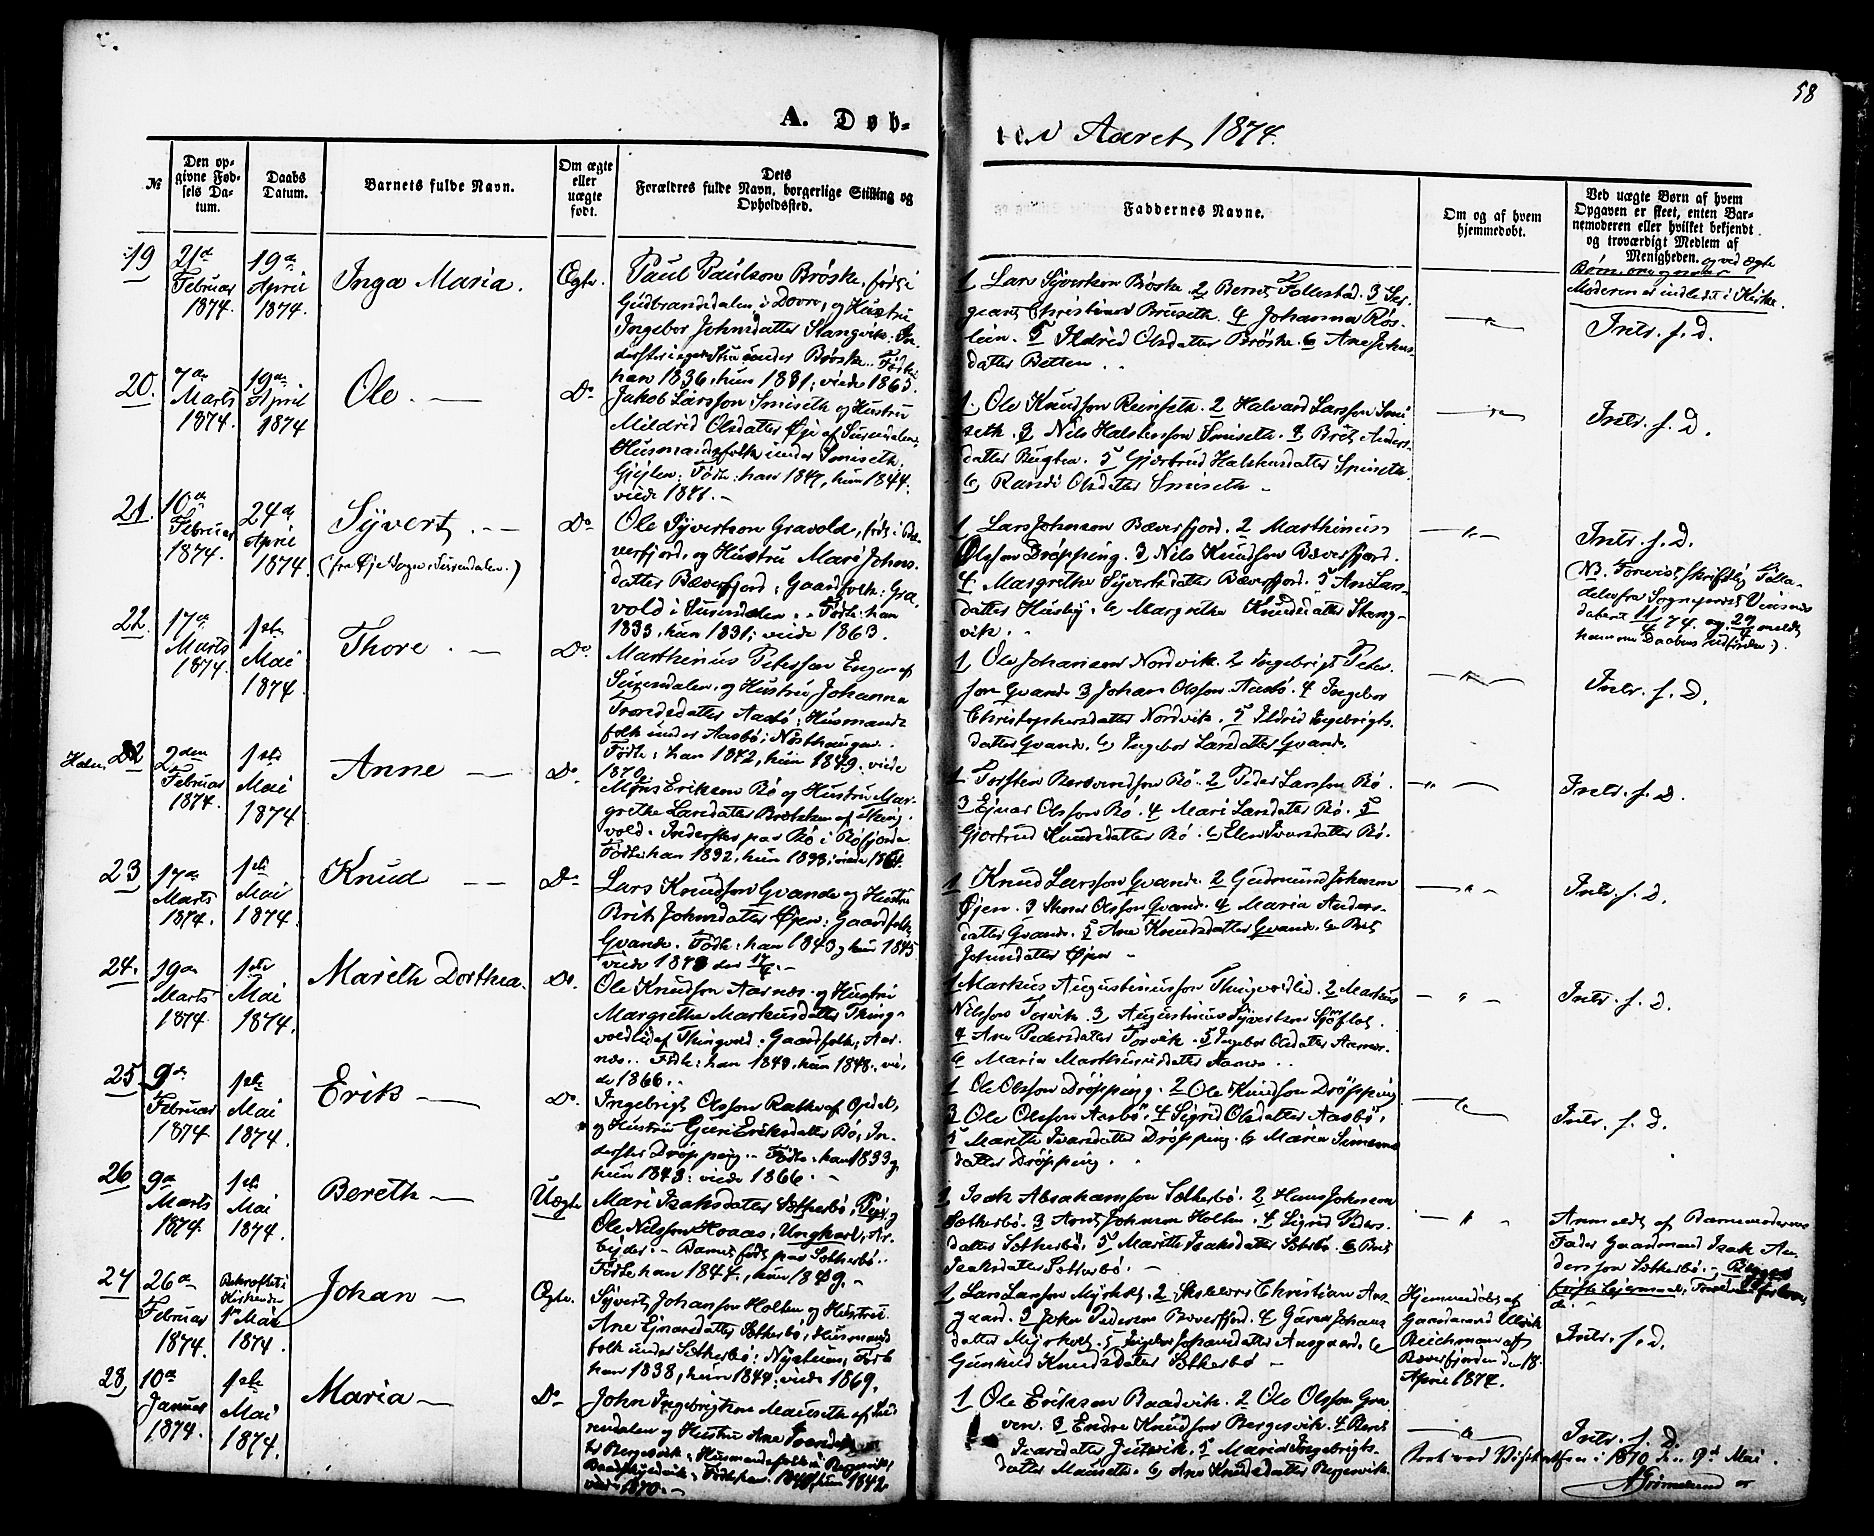 58
A. Døb-
te i Aaret 1874.
№
Den op-
givne Fød-
sels Da-
tum.
Daabs
Datum.
Barnets fulde Navn.
Om ægte
eller
uægte
født.
Dets
Forældres fulde Navn, borgerlige Stilling og
Opholdssted.
Faddernes Navne.
Om og af hvem
hjemmedøbt.
Ved uægte Børn af hvem
Opgaven er skeet, enten Bar-
nemoderen eller hvilket bekjendt
og troværdigt Medlem af
Menigheden. og ved ægte
Børn
Moderen er indledt i Kirke.
19
21de
Februar
1874.
19de
April
1874.
Inga Maria.
Ægte.
Paul Paulsen Brøske, født i
Gudbrandsdalen i Dovre, og Hustru
Ingebor Johnsdatter Stangvik. In-
under Brøske. Fødte:
han 1836, hun 1831; viede 1865.
1 Lars Syvertsen Brøske. 2 Bernt Follestad. 3 Ser-
geant Christian Bruseth. 4 Johanna Røs-
lien. 5 Ildrid Olsdatter Brøske. 6 Ane Johns-
datter Betten.
Intr. f. D.
20.
7de
Marts
1874.
19de
April
1874
Ole.
Do
Jakob Larsson Smiseth og Hustru
Mildrid Olsdatter Øje af Surendalen,
Husmandsfolk under Smiseth.
Fødte: han 1847, hun 1844.
viede 1871.
1. Ole Knudson Reinseth. 2 Halvard Larsson Smi-
seth. 3 Nils Halstenson Smiseth. 4 Brit Anders-
datter Bugten. 5 Gjertrud Halstensdatter Smiseth
6 Randi Olsdatter Smiseth
Intr. f. D.
21.
10de
Februar
1874.
24de
April
1874.
Syvert.
(fra Øje Sogn i Surendalen.)
Do
Ole Syvertson Gravold, født i Bæ-
verfjord, og Hustru Mari Johns-
datter Bæverfjord; Gaardfolk: Gra-
vold i Surendalen. Fødte: han
1833, hun 1831; viede 1863.
1 Lars Johnson Bæverfjord. 2 Marthinus
Olsson Drøpping. 3 Nils Knudson Bæverfjord.
4 Margrethe Syvertsdatter Bæverfjord. 5 Ane Lars-
datter Husby. 6 Margrethe Knudsdatter Stang-
vik.
Intr. f. D.
22.
17de
Marts
1874.
1ste
Mai
1874.
Thore.
Do.
Marthinus Peterson Engen af
Surendalen, og Hustru Johanna
Tronsdatter Aasbø; Husmands-
folk under Aasbø; Nordhaugen.
Fødte: han 1842, hun 1849. viede
1870.
1 Ole Johansen Nordvik. 2 Ingebrigt Peter-
son Qvande 3 Johan Olsson Aasbø. 4 Ingebor
Christophersdatter Nordvik. 5 Ildrid Ingebrigts-
datter Qvande. 6 Ingebor Larsdatter Qvande.
Intr. f. D.
Halsa. 22
2den
Februar
1874.
1ste
Mai
1874
Anne
Do.
Mons Eriksen Rø og Hustru Mar-
grethe Larsdatter Brekken af Thing-
vold. Inderster paa Rø i Røfjorden.
Fødte: han 1832, hun 1833; viede
1 Torsten Rasmusson Rø. 2 Peder Larsson Rø.
3 Ejnar Olsson Rø. 4 Mari Larsdatter Rø. 5
Gjertrud Knudsdatter Rø. 6 Elen Ivarsdatter Rø.
Intr. f. D.
23
17de
Marts
1874.
1ste
Mai
1874.
Knud
Do
Lars Knudson Qvande og Hustru
Brit Johnsdatter Øjen; Gaardfolk;
Qvande. Fødte: han 1843, hun 1845
viede 1873 den
1 Knud Larsson Qvande. 2 Gudmund Johnson
Øjen. 3 Olsson Qvande. 4 Maria Anders-
datter Qvande. 5 Ane Knudsdatter Qvande. 6 Brit
Johnsdatter Øjen
Intr. f. D.
24.
19de
Marts
1874.
1ste
Mai
1874.
Mareth Dorthea.
Do.
Ole Knudson Aarnæs og Hustru
Margrethe Markusdatter Thing-
voldlid af Thingvold. Gaardfolk; Aar-
næs. Fødte: han 1849, hun 1848. vi-
de 1866.
1 Markus Augustinusson Thingvoldlid. 2 Markus
Nilsson Torvik. 3 Augustinus Syvertsen Sjøflot.
4 Ane Pedersdatter Torvik. 5 Ingebor Olsdatter Aarnæs.
6 Maria Marthinusdatter Aasbø.
Intr. f. D.
25.
9de
Februar
1874
1ste
Mai
1874.
Erik
Do.
Ingebrigt Olsson Rathe af Opdal,
og Hustru Guri Eriksdatter Bø; In-
derster Drøpping. Fødte: han 1833,
hun 1843; viede 1866.
1 Ole Olsson Drøpping. 2 Ole Knudson Drøpping
3 Ole Olsson Aasbø. 4 Sigrid Olsdatter Aasbø,
5 Marith Ivarsdatter Drøpping. 6 Maria Simons-
datter Drøpping.
Intr. f. D.
26
9de
Marts
1874.
1ste
Mai
1874.
Bereth
Uægte
Mari Isaksdatter Sætherbø, Pige og
Ole Nilsson Hoaas, Ungkarl, Ar-
bejder. Barnet født paa Sætherbø.
Fødte han 1844, hun 1849.
1. Isak Abrahamson Sætherbø. 2 Hans Johnson
Sætherbø. 3 Arnt Johnson Holten. 4 Sigrid Peders-
datter Sætherbø. 5 Marith Isaksdatter Sætherbø. 6 Brit
Isaksdatter Sætherbø.
Anmeldt af Barnemoderens
Fader Gaardmand Isak An-
dersson Sætherbø. Begges
første Lejermaal;
27
26de
Februar
1874.
Bekræftet i
Kirken den
1ste Mai
1874.
Johan
Ægte.
Syvert Johanson Holten og Hustru
Ane Ejnarsdatter Sætherbø; Husmands-
folk under Sætherbø: Nystuen; Fødte
han 1838, hun 1844; viede 1869.
1 Lars Larsson Myrholt. 2 Skolelærer Christian Aas-
gaard. 3 John Pederson Bæverfjord. 4 Guren Johans-
datter Myrholt. 5 Ingebor Johansdatter Aasgaard. 6
Gunhild Knudsdatter Sætherbø
Hjemmedøbt af
Gaardmand Ulrik
Reichman af
Bæverfjorden den 18.
April 1874.
Intr. f. D.
28
10de
Januar
1874.
1ste
Mai
1874.
Maria
Do
John Ingebrigtsen Mauseth af Su-
rendalen og Hustru Ane Ivarsdat-
ter Bergesvik; Husmandsfolk
1842
viede 1870.
1 Ole Erikson Baadvik. 2 Ole Olsson Gra-
ven. 3 Endre Knudson Bergesvik. 4 Berit
Ivarsdatter Jutevik. 5 Maria Ingebrigts-
datter Mauseth. 6 Ane Knudsdatter Bergesvik.
Intr. f. D.
ved Visitatsen i 1870 den 9de Mai.